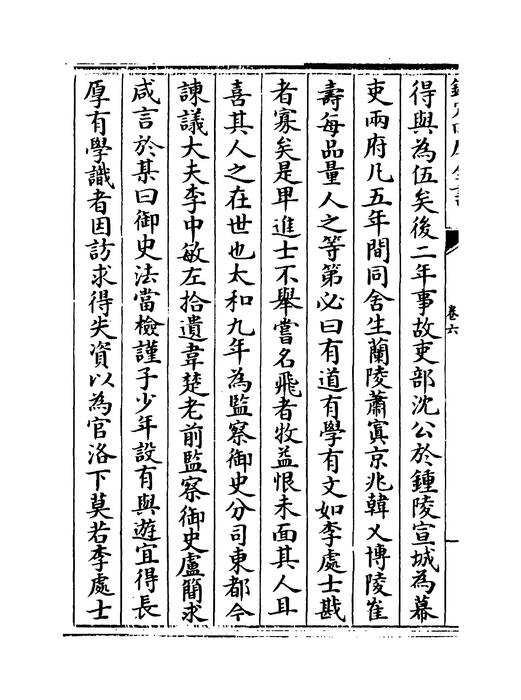 欽定四庫全書
卷六
得與為伍矣後二年事故吏部沈公於鍾陵宣城為幕
吏兩府凡五年間同舍生蘭陵蕭寘京兆韓乂博陵崔
壽每品量人之等第必曰有道有學有文如李處士戡
者寡矣是卑進士不舉嘗名飛者牧益恨未面其人且
喜其人之在世也太和九年為監察御史分司東都今
諫議大夫李中敏左拾遺韋楚老前監察御史盧簡求
咸言於某曰御史法當檢謹子少年設有與遊宜得長
厚有學識者因訪求得失資以為官洛下莫若李處士